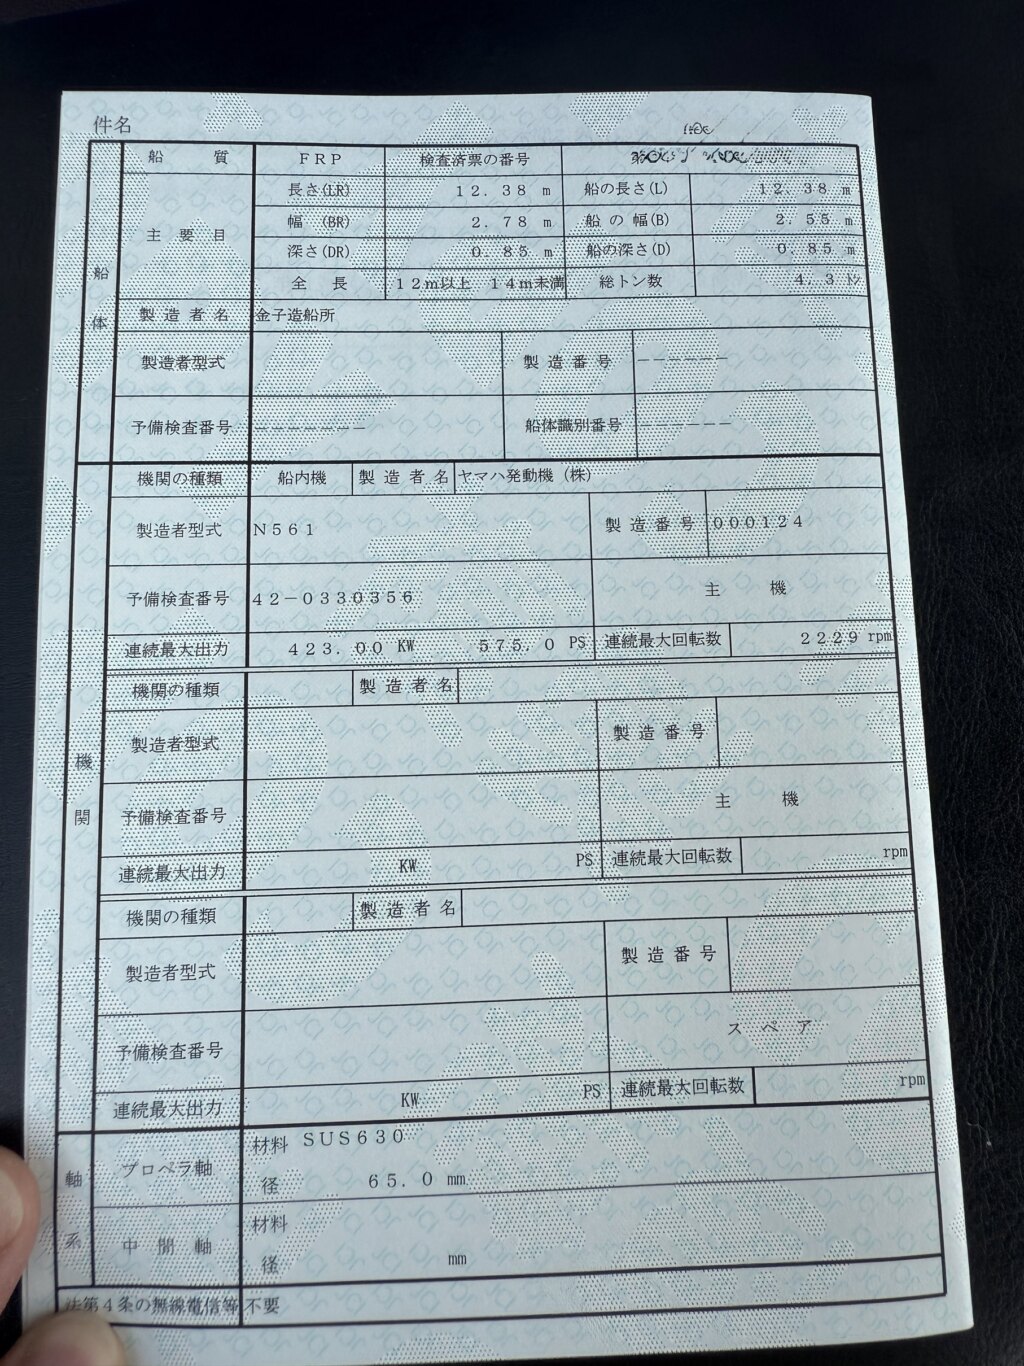 件名
船体
船質 FRP 検査済票の番号 第
主要目 長さ(LR) 12.38 m 船の長さ(L) 12.38 m
幅 (BR) 2.78 m 船の幅(B) 2.55 m
深さ(DR) 0.85 m 船の深さ(D) 0.85 m
全長 12m以上 14m未満 総トン数 4.3 トン
製造者名 金子造船所
製造者型式 製造番号 ------
予備検査番号 ------- 船体識別番号 ------
機関
機関の種類 船内機 製造者名 ヤマハ発動機(株)
製造者型式 N561 製造番号 000124
予備検査番号 42-0330356 主機
連続最大出力 423.00 KW 575.0 PS 連続最大回転数 2229 rpm
機関の種類 製造者名
製造者型式 製造番号
予備検査番号 主機
連続最大出力 KW PS 連続最大回転数 rpm
機関の種類 製造者名
製造者型式 製造番号
予備検査番号 スペア
連続最大出力 KW PS 連続最大回転数 rpm
軸系
プロペラ軸 材料 SUS630
径 65.0 mm
中間軸 材料
径 mm
法第4条の無線電信等 不要